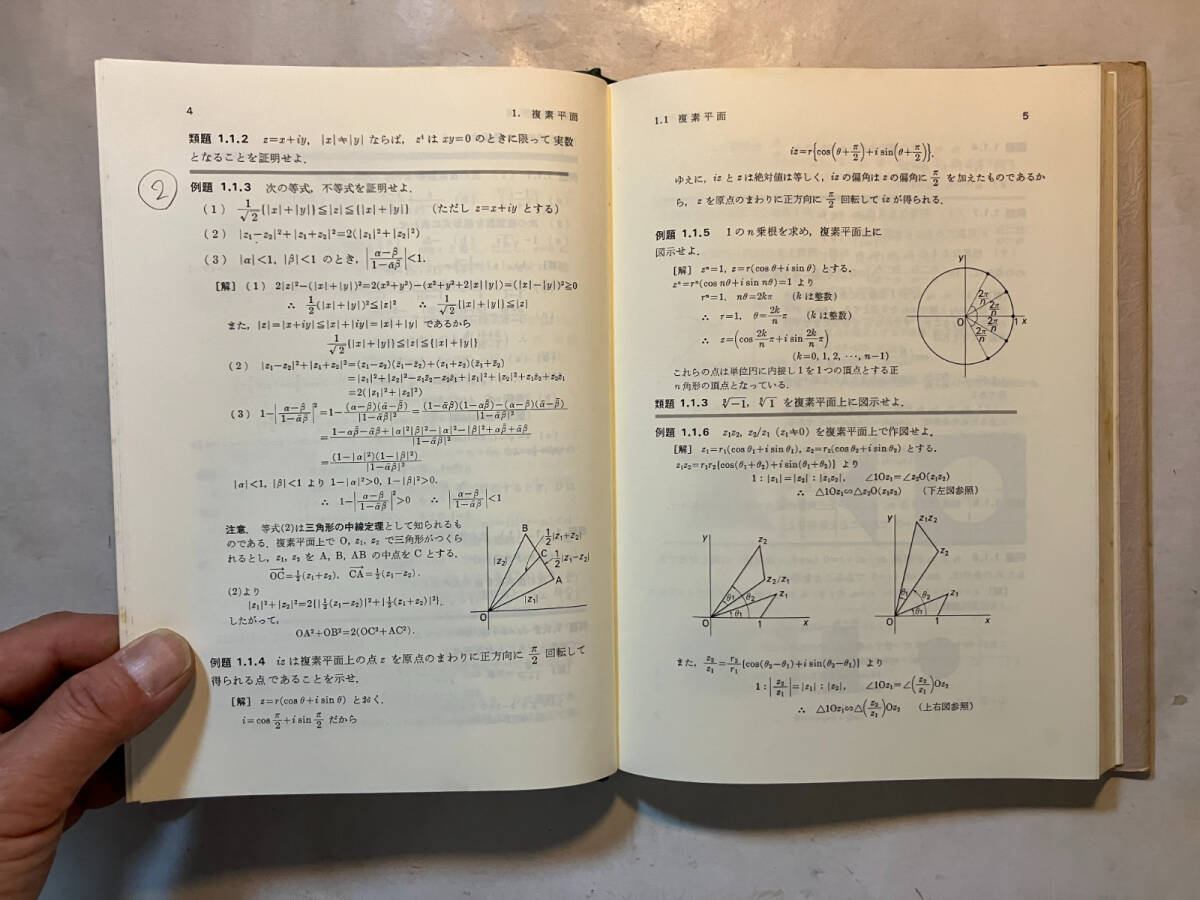 4
1. 複素平面
類題 1.1.2 z=x+iy, |x|≠|y| ならば, z⁴ は xy=0 のときに限って実数
となることを証明せよ.
②
例題 1.1.3 次の等式, 不等式を証明せよ.
(1) 1/√2{|x|+|y|}≦|z|≦{|x|+|y|} (ただし z=x+iy とする)
(2) |z₁−z₂|²+|z₁+z₂|²=2(|z₁|²+|z₂|²)
(3) |α|<1, |β|<1 のとき, |(α−β)/(1−ᾱβ)|<1.
[解] (1) 2|z|²−(|x|+|y|)²=2(x²+y²)−(x²+y²+2|x||y|)=(|x|−|y|)²≧0
∴ 1/2(|x|+|y|)²≦|z|² ∴ 1/√2{|x|+|y|}≦|z|
また, |z|=|x+iy|≦|x|+|iy|=|x|+|y| であるから
1/√2{|x|+|y|}≦|z|≦{|x|+|y|}
(2) |z₁−z₂|²+|z₁+z₂|²=(z₁−z₂)(z̄₁−z̄₂)+(z₁+z₂)(z̄₁+z̄₂)
=|z₁|²+|z₂|²−z₁z̄₂−z₂z̄₁+|z₁|²+|z₂|²+z₁z̄₂+z₂z̄₁
=2(|z₁|²+|z₂|²)
(3) 1−|(α−β)/(1−ᾱβ)|²=1−(α−β)(ᾱ−β̄)/|1−ᾱβ|²=((1−ᾱβ)(1−αβ̄)−(α−β)(ᾱ−β̄))/|1−ᾱβ|²
=(1−αβ̄−ᾱβ+|α|²|β|²−|α|²−|β|²+αβ̄+ᾱβ)/|1−ᾱβ|²
=(1−|α|²)(1−|β|²)/|1−ᾱβ|²
|α|<1, |β|<1 より 1−|α|²>0, 1−|β|²>0.
∴ 1−|(α−β)/(1−ᾱβ)|²>0 ∴ |(α−β)/(1−ᾱβ)|<1
注意. 等式(2)は三角形の中線定理として知られるも
のである. 複素平面上で O, z₁, z₂ で三角形がつくら
れるとし, z₁, z₂ を A, B, AB の中点を C とする.
OC→=½(z₁+z₂), CA→=½(z₁−z₂).
(2)より
|z₁|²+|z₂|²=2{|½(z₁−z₂)|²+|½(z₁+z₂)|²}.
したがって,
OA²+OB²=2(OC²+AC²).
B
½|z₁+z₂|
|z₂|
C
½|z₁−z₂|
A
|z₁|
O
例題 1.1.4 iz は複素平面上の点 z を原点のまわりに正方向に π/2 回転して
得られる点であることを示せ.
[解] z=r(cos θ+i sin θ) とおく.
i=cos π/2+i sin π/2 だから
1.1 複素平面
5
iz=r{cos(θ+π/2)+i sin(θ+π/2)}.
ゆえに, iz と z は絶対値は等しく, iz の偏角は z の偏角に π/2 を加えたものであるか
ら, z を原点のまわりに正方向に π/2 回転して iz が得られる.
例題 1.1.5 1の n 乗根を求め, 複素平面上に
図示せよ.
[解] zⁿ=1, z=r(cos θ+i sin θ) とする.
zⁿ=rⁿ(cos nθ+i sin nθ)=1 より
rⁿ=1, nθ=2kπ (k は整数)
∴ r=1, θ=2k/n π (k は整数)
∴ z=(cos 2k/n π+i sin 2k/n π)
(k=0, 1, 2, ⋯, n−1)
これらの点は単位円に内接し1を1つの頂点とする正
n 角形の頂点となっている.
y
2π/n
2π/n
O
2π/n
2π/n
1 x
類題 1.1.3 ⁵√−1, ⁶√1 を複素平面上に図示せよ.
例題 1.1.6 z₁z₂, z₂/z₁ (z₁≠0) を複素平面上で作図せよ.
[解] z₁=r₁(cos θ₁+i sin θ₁), z₂=r₂(cos θ₂+i sin θ₂) とする.
z₁z₂=r₁r₂{cos(θ₁+θ₂)+i sin(θ₁+θ₂)} より
1:|z₁|=|z₂|:|z₁z₂|, ∠1Oz₁=∠z₂O(z₁z₂)
∴ △1Oz₁∽△z₂O(z₁z₂) (下左図参照)
y
z₂
z₂/z₁
θ₁
θ₂
z₁
θ₁
O
1
x
y
z₁z₂
z₂
θ₁
θ₂
z₁
θ₁
O
1
x
また, z₂/z₁=r₂/r₁{cos(θ₂−θ₁)+i sin(θ₂−θ₁)} より
1:|z₂/z₁|=|z₁|:|z₂|, ∠1Oz₁=∠(z₂/z₁)Oz₂
∴ △1Oz₁∽△(z₂/z₁)Oz₂ (上右図参照)